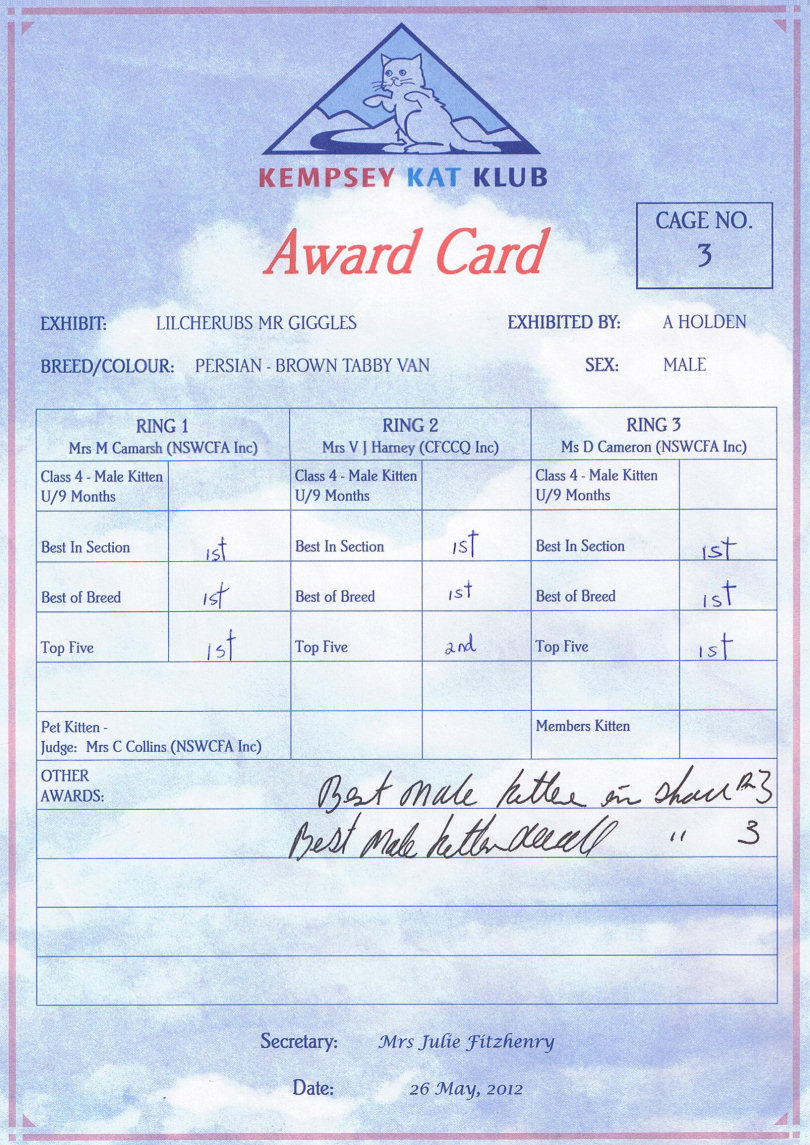 KEMPSEY KAT KLUB
Award Card
CAGE NO.
3
EXHIBIT: LILCHERUBS MR GIGGLES EXHIBITED BY: A HOLDEN
BREED/COLOUR: PERSIAN - BROWN TABBY VAN SEX: MALE
RING 1 RING 2 RING 3
Mrs M Camarsh (NSWCFA Inc) Mrs V J Harney (CFCCQ Inc) Ms D Cameron (NSWCFA Inc)
Class 4 - Male Kitten Class 4 - Male Kitten Class 4 - Male Kitten
U/9 Months U/9 Months U/9 Months
Best In Section 1st Best In Section 1st Best In Section 1st
Best of Breed 1st Best of Breed 1st Best of Breed 1st
Top Five 1st Top Five 2nd Top Five 1st
Pet Kitten - Members Kitten
Judge: Mrs C Collins (NSWCFA Inc)
OTHER
AWARDS:
Best Male Kitten in Show 3
Best Male Kitten " 3
Secretary: Mrs Julie Fitzhenry
Date: 26 May, 2012